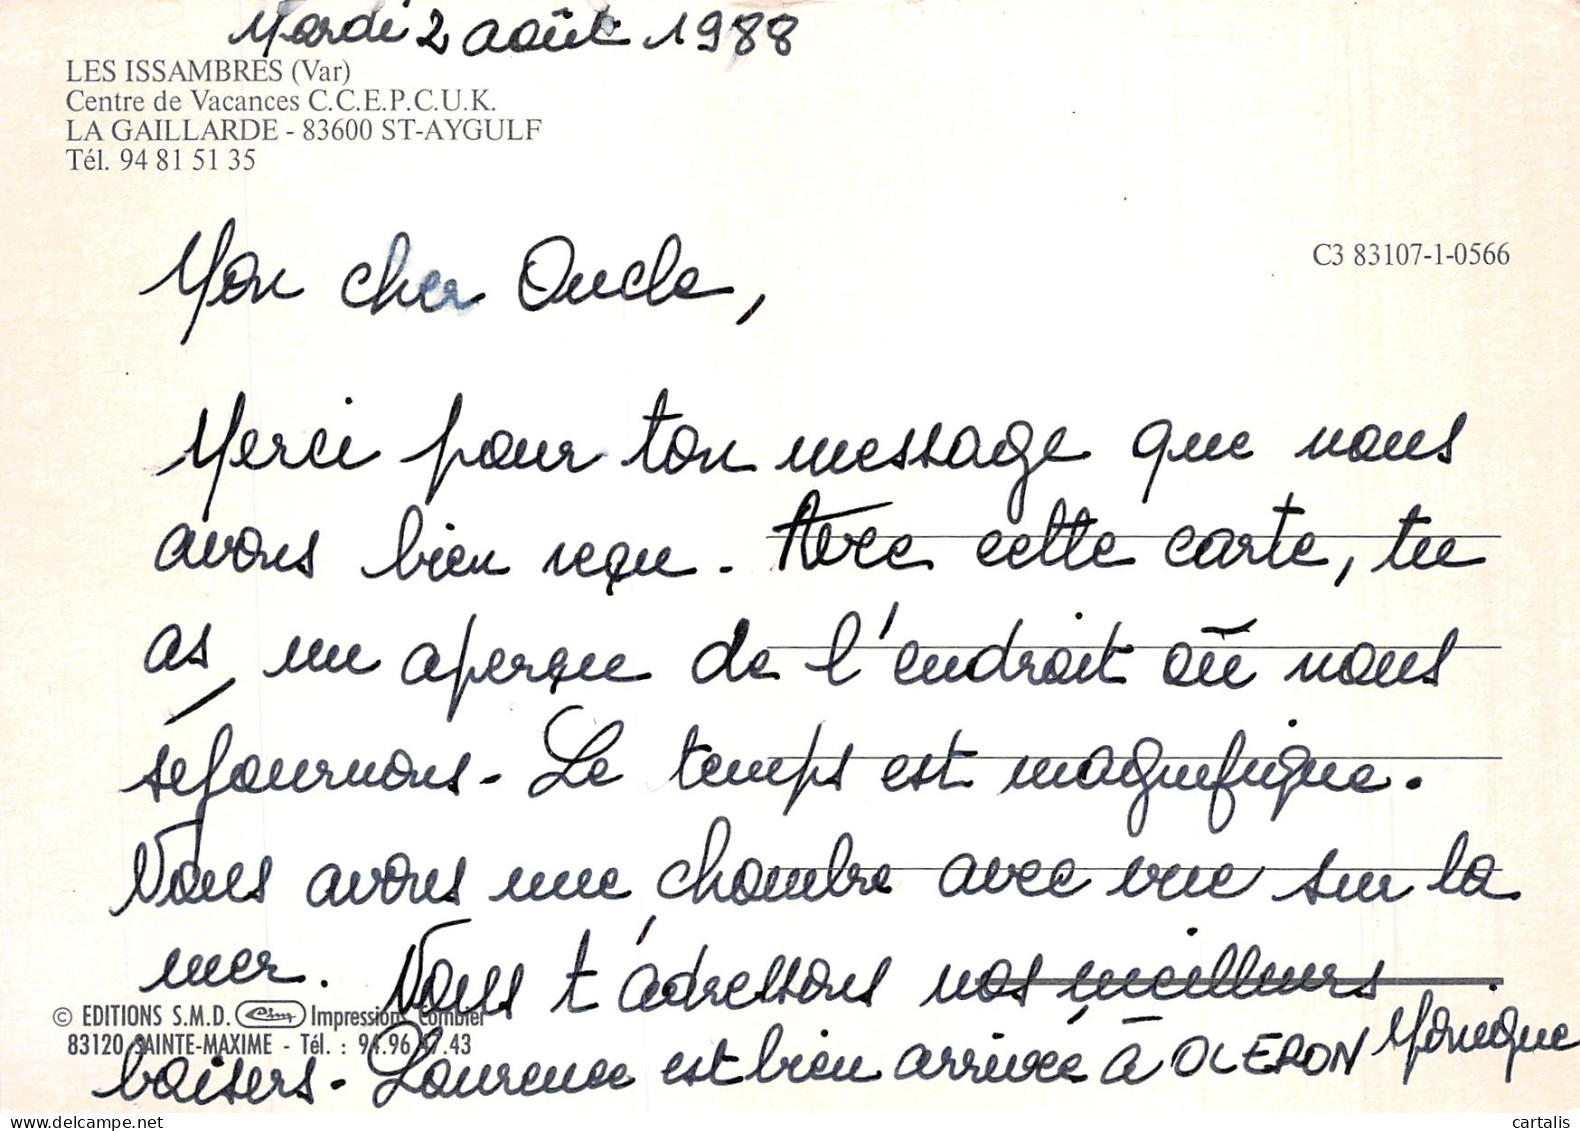 Mardi 2 août 1988
LES ISSAMBRES (Var)
Centre de Vacances C.C.E.P.C.U.K.
LA GAILLARDE - 83600 ST-AYGULF
Tél. 94 81 51 35
C3 83107-1-0566
Mon cher Oncle,
Merci pour ton message que nous
avons bien reçu. Avec cette carte, tu
as un aperçu de l'endroit où nous
séjournons - Le temps est magnifique.
Nous avons une chambre avec vue sur la
mer. Nous t'adressons nos meilleurs
baisers - Laurence est bien arrivée à OLERON Monique
© EDITIONS S.M.D. Cim Impressions Combier
83120 SAINTE-MAXIME - Tél. : 94.96 47.43
cartalis